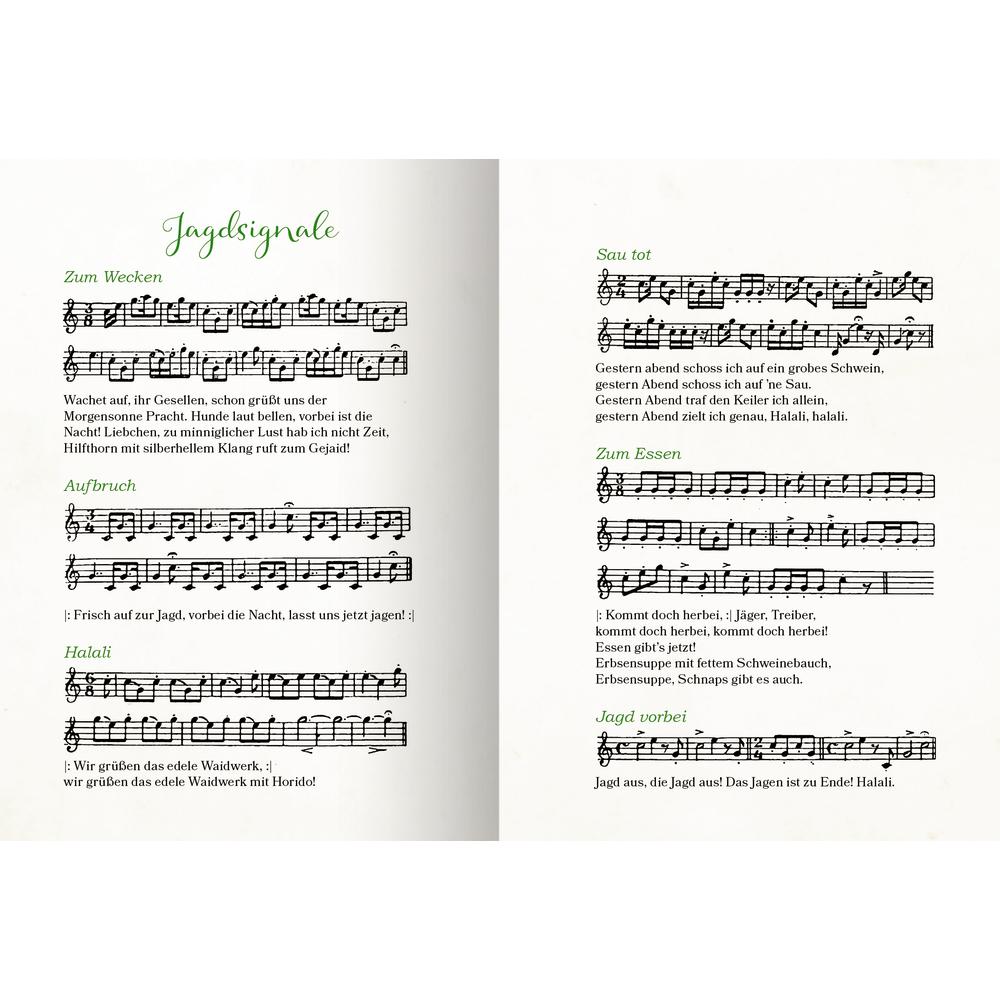 Jagdsignale
Zum Wecken
3
8
Wachet auf, ihr Gesellen, schon grüßt uns der
Morgensonne Pracht. Hunde laut bellen, vorbei ist die
Nacht! Liebchen, zu minniglicher Lust hab ich nicht Zeit,
Hilfthorn mit silberhellem Klang ruft zum Gejaid!
Aufbruch
3
4
|: Frisch auf zur Jagd, vorbei die Nacht, lasst uns jetzt jagen! :|
Halali
6
8
|: Wir grüßen das edele Waidwerk, :|
wir grüßen das edele Waidwerk mit Horido!
Sau tot
2
4
Gestern abend schoss ich auf ein grobes Schwein,
gestern Abend schoss ich auf ’ne Sau.
Gestern Abend traf den Keiler ich allein,
gestern Abend zielt ich genau, Halali, halali.
Zum Essen
3
8
|: Kommt doch herbei, :| Jäger, Treiber,
kommt doch herbei, kommt doch herbei!
Essen gibt’s jetzt!
Erbsensuppe mit fettem Schweinebauch,
Erbsensuppe, Schnaps gibt es auch.
Jagd vorbei
2
4
Jagd aus, die Jagd aus! Das Jagen ist zu Ende! Halali.